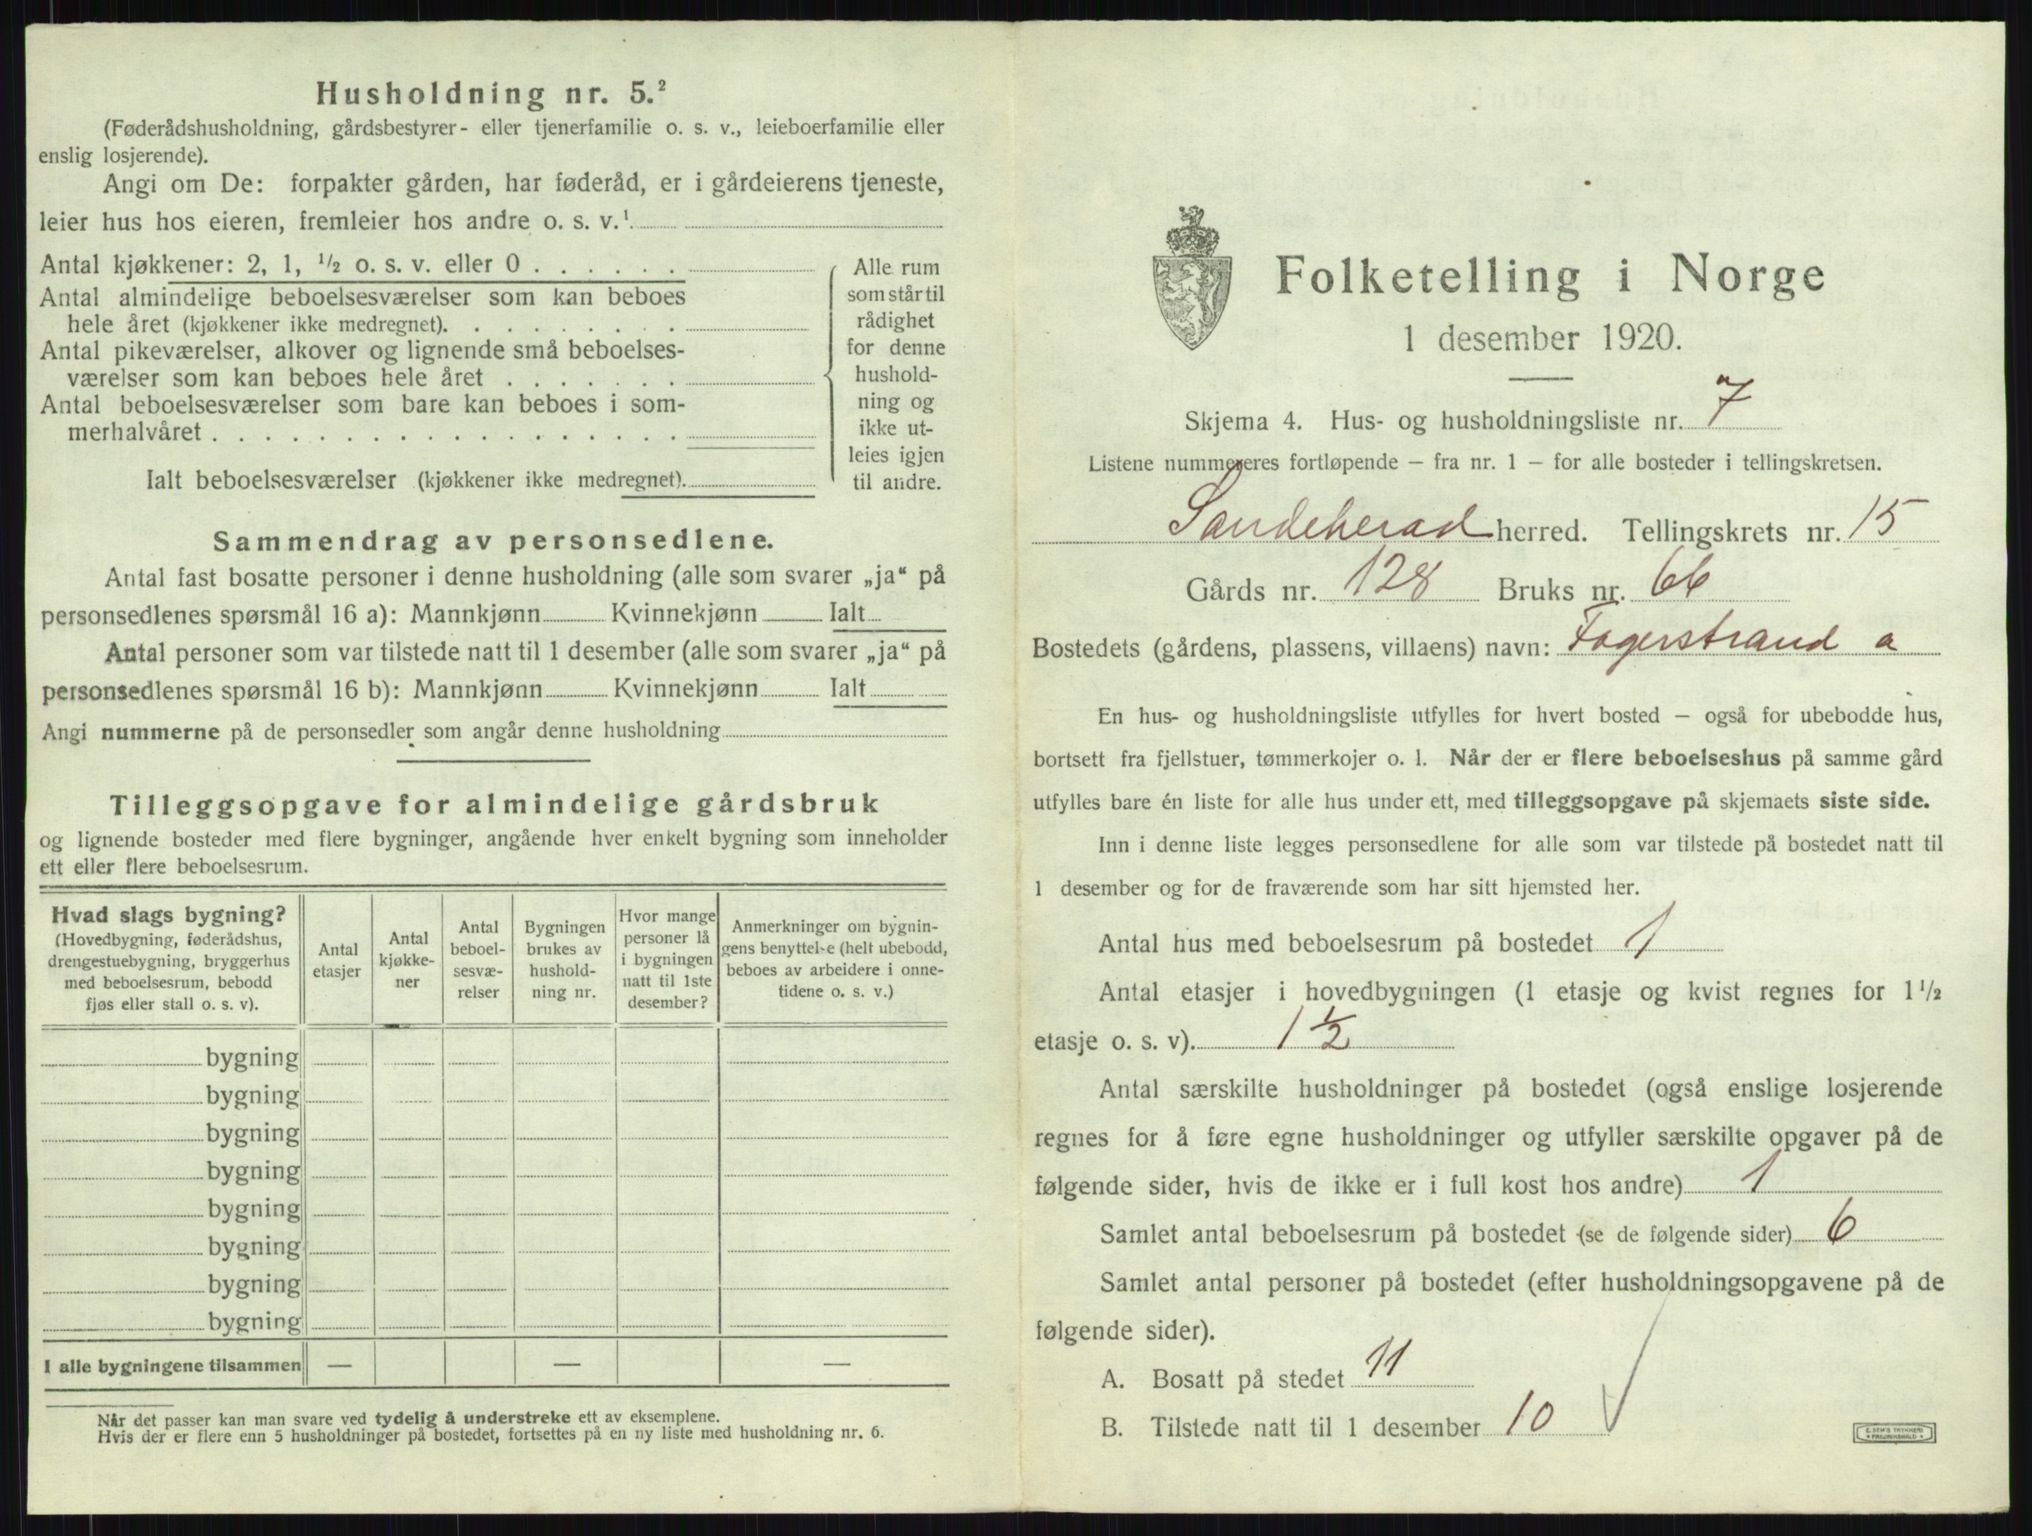 Husholdning nr. 5.²
(Føderådshusholdning, gårdsbestyrer- eller tjenerfamilie o. s. v., leieboerfamilie eller
enslig losjerende).
Angi om De: forpakter gården, har føderåd, er i gårdeierens tjeneste,
leier hus hos eieren, fremleier hos andre o. s. v.¹
Antal kjøkkener: 2, 1, ½ o. s. v. eller 0 . . . . . .
Antal almindelige beboelsesværelser som kan beboes
hele året (kjøkkener ikke medregnet). . . . . . . . .
Antal pikeværelser, alkover og lignende små beboelses-
værelser som kan beboes hele året . . . . . . .
Antal beboelsesværelser som bare kan beboes i som-
merhalvåret . . . . . . . . . . . . . . . . . .
Ialt beboelsesværelser (kjøkkener ikke medregnet).
Alle rum
som står til
rådighet
for denne
hushold-
ning og
ikke ut-
leies igjen
til andre.
Sammendrag av personsedlene.
Antal fast bosatte personer i denne husholdning (alle som svarer „ja“ på
personsedlenes spørsmål 16 a): Mannkjønn Kvinnekjønn Ialt
Antal personer som var tilstede natt til 1 desember (alle som svarer „ja“ på
personsedlenes spørsmål 16 b): Mannkjønn Kvinnekjønn Ialt
Angi nummerne på de personsedler som angår denne husholdning
Tilleggsopgave for almindelige gårdsbruk
og lignende bosteder med flere bygninger, angående hver enkelt bygning som inneholder
ett eller flere beboelsesrum.
Hvad slags bygning?
(Hovedbygning, føderådshus,
drengestuebygning, bryggerhus
med beboelsesrum, bebodd
fjøs eller stall o. s. v).
Antal
etasjer
Antal
kjøkke-
ner
Antal
beboel-
sesvæ-
relser
Bygningen
brukes av
hushold-
ning nr.
Hvor mange
personer lå
i bygningen
natt til 1ste
desember?
Anmerkninger om bygnin-
gens benyttelse (helt ubebodd,
beboes av arbeidere i onne-
tidene o. s. v.)
bygning
bygning
bygning
bygning
bygning
bygning
bygning
bygning
I alle bygningene tilsammen — — —
Når det passer kan man svare ved tydelig å understreke ett av eksemplene.
Hvis der er flere enn 5 husholdninger på bostedet, fortsettes på en ny liste med husholdning nr. 6.
Folketelling i Norge
1 desember 1920.
Skjema 4. Hus- og husholdningsliste nr. 7
Listene nummereres fortløpende – fra nr. 1 – for alle bosteder i tellingskretsen.
Sandeherad herred. Tellingskrets nr. 15
Gårds nr. 128 Bruks nr. 66
Bostedets (gårdens, plassens, villaens) navn: Fagerstrand a
En hus- og husholdningsliste utfylles for hvert bosted – også for ubebodde hus,
bortsett fra fjellstuer, tømmerkojer o. l. Når der er flere beboelseshus på samme gård
utfylles bare én liste for alle hus under ett, med tilleggsopgave på skjemaets siste side.
Inn i denne liste legges personsedlene for alle som var tilstede på bostedet natt til
1 desember og for de fraværende som har sitt hjemsted her.
Antal hus med beboelsesrum på bostedet 1
Antal etasjer i hovedbygningen (1 etasje og kvist regnes for 1½
etasje o. s. v). 1½
Antal særskilte husholdninger på bostedet (også enslige losjerende
regnes for å føre egne husholdninger og utfyller særskilte opgaver på de
følgende sider, hvis de ikke er i full kost hos andre) 1
Samlet antal beboelsesrum på bostedet (se de følgende sider) 6
Samlet antal personer på bostedet (efter husholdningsopgavene på de
følgende sider).
A. Bosatt på stedet 11
B. Tilstede natt til 1 desember 10